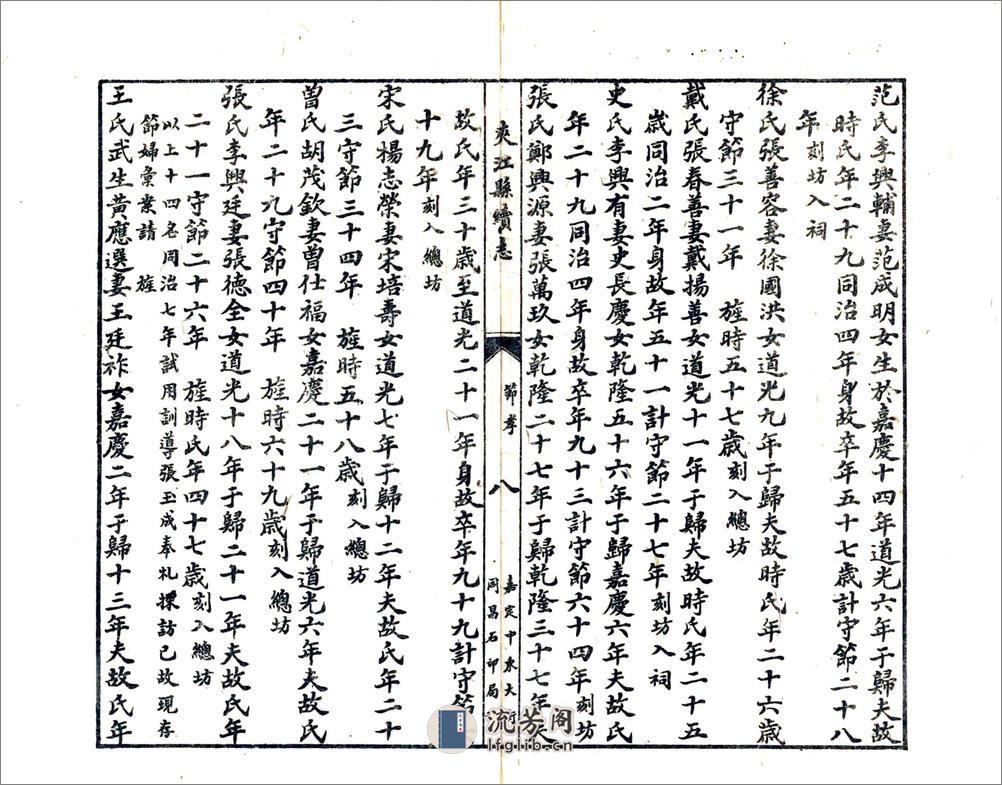 范氏李興輔妻范成明女生於嘉慶十四年道光六年于歸夫故
時氏年二十九同治四年身故卒年五十七歲計守節二十八
年刻坊入祠
徐氏張善容妻徐國洪女道光九年于歸夫故時氏年二十六歲
守節三十一年 旌時五十七歲刻入總坊
戴氏張春善妻戴揚善女道光十一年于歸夫故時氏年二十五
歲同治二年身故年五十一計守節二十七年刻坊入祠
史氏李興有妻史長慶女乾隆五十六年于歸嘉慶六年夫故氏
年二十九同治四年身故卒年九十三計守節六十四年刻坊
張氏鄭興源妻張萬玖女乾隆二十七年于歸乾隆三十七年夫
夾江縣續志
節孝
八
嘉定中東大街
同昌石印局
故氏年三十歲至道光二十一年身故卒年九十九計守節
十九年刻入總坊
宋氏楊志榮妻宋培壽女道光七年于歸十二年夫故氏年二十
三守節三十四年 旌時五十八歲刻入總坊
曾氏胡茂欽妻曾仕福女嘉慶二十一年于歸道光六年夫故氏
年二十九守節四十年 旌時六十九歲刻入總坊
張氏李興廷妻張德全女道光十八年于歸二十一年夫故氏年
二十一守節二十六年 旌時氏年四十七歲刻入總坊
以上十四名同治七年試用訓導張玉成奉札採訪已故現存
節婦彙業請 旌
王氏武生黃應選妻王廷祚女嘉慶二年于歸十三年夫故氏年
流芳阁
lfglib.cn